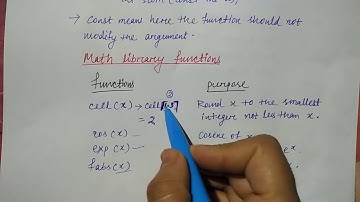 → Const mean here the function should not
modify the argument.
Math library functions
functions purpose
ceil(x) → ceil Round x to the smallest
= 2 integer not less than x.
cos(x) — Cosine of x
exp(x) —
fabs(x)